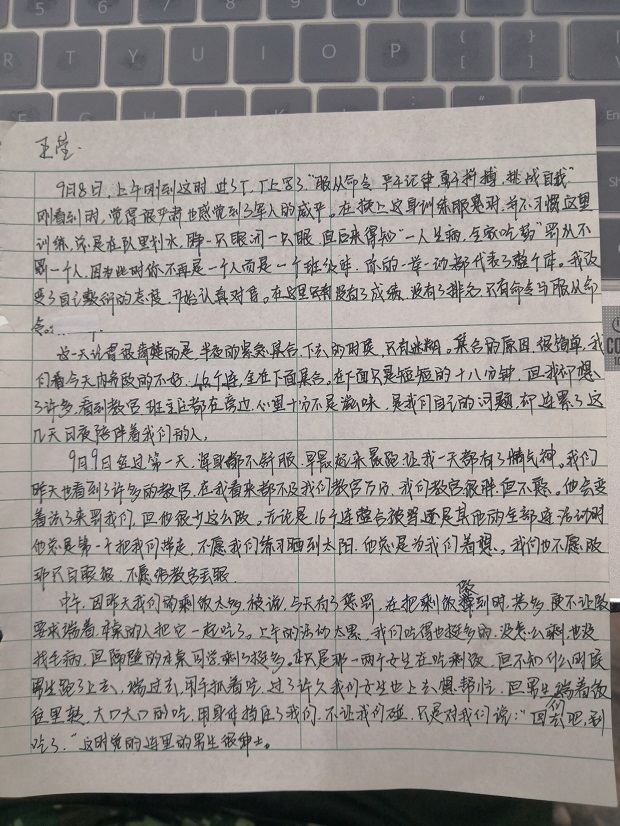 5 6 7 8 9 0
R T Y U I O P
王莹.
9月8日,上午刚到这时,"服从命令 严于纪律,勇于拼搏,挑战自我"
刚看到时,觉得很严肃也感觉到了军人的威严。在换上这身训练服意时,并不习惯这里
训练,总是在队里划水,睁一只眼闭一只眼,直后来得知"一人生病,全家吃药"罚从不
罚一个人,因为此时你不再是一个人而是一个班级阵,你的一举一动都代表了整个阵。我改
变了自己敷衍的态度,开始认真对待。在这里没有了成绩,没有了排名,只有命令与服从命
令。
这一天记者很清楚的是,半夜的紧急集合,下去的时候,只有迷糊。集合的原因,很简单,我
们看今天内务做的不好,16个连,全在下面集合。在下面只是短短的十八分钟,但我却想
了许多,看到教官,班主任都在旁边,心里十分不是滋味,是我们自己的问题,却连累了这
几天日夜陪伴着我们的人。
9月9日经过第一天,浑身都不舒服,早晨起来晨跑,让我一天都有了精气神。我们
昨天也看到了许多的教官,在我看来都不及我们教官万分,我们教官很胖,但不憨。他会变
着法子来罚我们,但他很少这么做。无论是16个连整合被罚还是其他的全部连活动时
他总是第一个把我们带走,不愿我们练习晒到太阳,他总是为我们着想。我们也不愿做
那只白眼狼,不愿给教官丢眼
中午,因昨天我们的剩饭太多,被说,今天有了惩罚,在把剩饭倒时,甚多,便不让
要求端着,本桌的人把它一起吃了。上午的活动太累,我们吃得也挺多的,没怎么剩,也没
找毛病,但隔壁的本桌可说剩了挺多。本只是那一两个女生在吃剩饭,但不知什么时候
男生跑了上去,端过去,用手抓着吃,过了许久我们女生也上去想帮忙,但男生端着饭
往里靠,大口大口的吃,用身体挡住了我们,不让我们碰,只是对我们说:"你们回去吧,别
吃了。"这时觉的连里的男生很绅士。